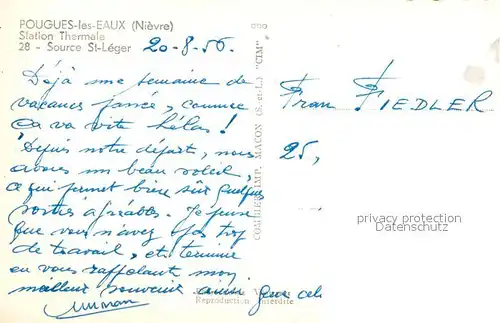 POUGUES-les-EAUX (Nièvre)
Station Thermale
28 - Source St-Léger
20-8-56.
Déjà une semaine de
vacances passée, comme
ça va vite hélas !
Depuis notre départ, nous
avons un beau soleil,
ce qui permet bien sûr quelques
sorties agréables. Je pense
que vous n'avez pas trop
de travail, et termine
en vous rappelant mon
meilleur souvenir ainsi que
Reproduction Interdite
COMBIER IMP. MACON (S.-et-L.) "CIM"
FIEDLER
25,
privacy protection
Datenschutz